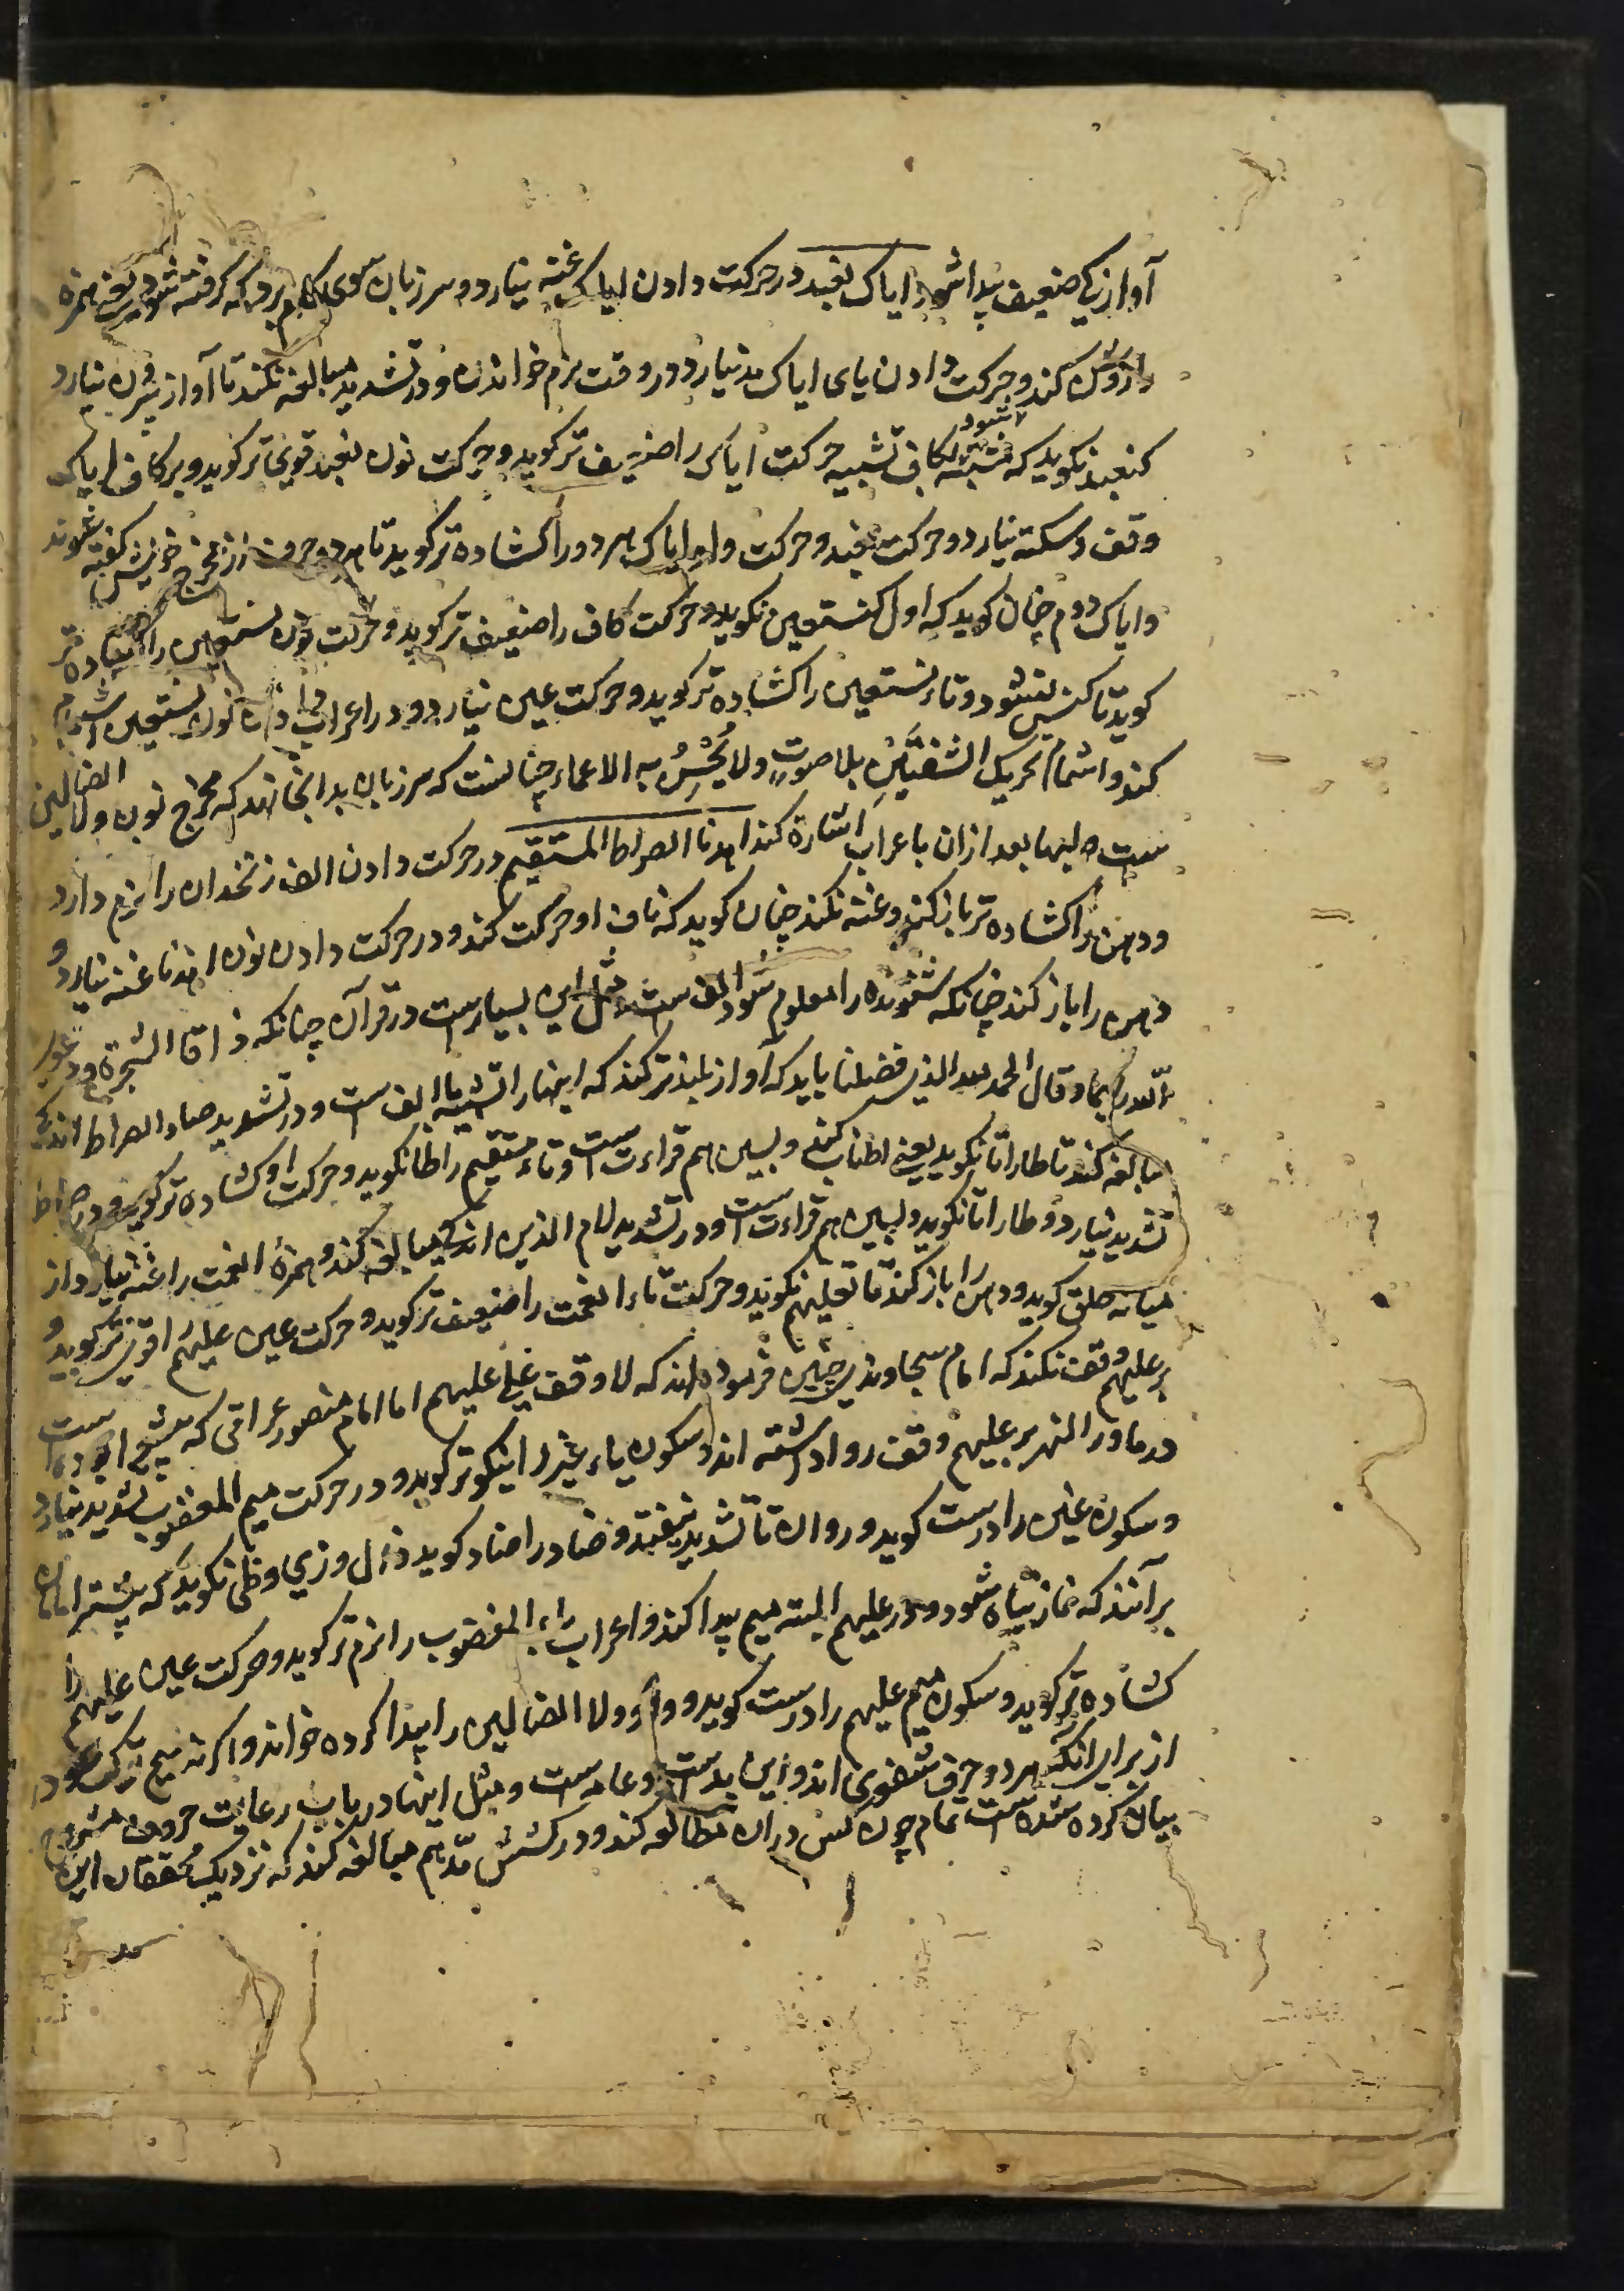 آوازی ضعیف پیدا شود ایاک نعبد در حرکت دادن ایاک غنه نیارد و سر زبان سوی کام برد که گرفته شود یعنی همزه
را روشن کند و حرکت دادن یای ایاک مد نیارد و در وقت نرم خواندن و در تشدید مبالغه نکند تا آواز بیرون نیارد
کنعبد نگوید که مشبه شود بکاف تشبیه حرکت ایاک را ضعیف تر گوید و حرکت نون نعبد قوی تر گوید و بر کاف ایاک
وقف و سکته نیارد و حرکت نعبد و حرکت واو ایاک هر دو را کشاده تر گوید تا هر دو حرف از مخرج خویش گفته شوند
و ایاک دوم چنان گوید که اول کنستعین نگوید و حرکت کاف را ضعیف تر گوید و حرکت نون نستعین را کشاده تر
گوید تا کنس نشود و تاء نستعین را کشاده تر گوید و حرکت عین نیارد و در اعراب دادن نون نستعین اشمام
کند و اشمام تحریک الشفتین بلا صوت ولا یحس به الاعماء چنانست که سر زبان بدانجا نهد که مخرج نون ولا الضالین
ست بعد ازان باعراب اشارة کند اهدنا الصراط المستقیم در حرکت دادن الف زنخدان را نرم دارد
و دهن را کشاده تر باز کند و غنه نکند چنان گوید که ناف او حرکت کند و در حرکت دادن نون اهدنا غنه نیارد و
دهن را باز کند چنانکه شنونده را معلوم شود الف ست مثل این بسیارست در قرآن چنانکه ذاقا الشجرة و دعوا
الله ربهما و قالا الحمد لله الذی فضلنا باید که آواز بلند تر کند که اینها را تثنیه با الف ست و در تشدید صاد الصراط اندکی
مبالغه کند تا طا را تا نگوید یعنی اطناب کند و بسین هم قراءت ست و تاء مستقیم را طا نگوید و حرکت او کشاده تر گوید و در صراط
تشدید نیارد و طا را تا نگوید و بسین هم قراءت ست و در تشدید لام الذین اندکی مبالغه کند و همزۀ انعمت را غنه نیارد از
میانه حلق گوید و دهن را باز کند تا تعلیهم نگوید و حرکت تاء انعمت را ضعیف تر گوید و حرکت عین علیهم را قوی تر گوید و
بر علیهم وقف نکند که امام سجاوندی چنین فرموده اند که لا وقف علی علیهم اما امام منصور عراقی که متبع بوده است
در ماوراء النهر بر علیهم وقف روا داشته اند و سکون یاء غیر را نیکوتر گوید و در حرکت میم المغضوب تشدید نیارد
و سکون غین را درست گوید و روان تا تشدید نیفتد و ضاد را ضاد گوید ذال و زی و ظی نگوید که بیشتر امامان
برآنند که نماز تباه شود و در علیهم البته میم پیدا کند و اعراب باء المغضوب را نرم تر گوید و حرکت عین علیهم را
کشاده تر گوید و سکون میم علیهم را درست گوید و واو ولا الضالین را پیدا کرده خواند و اگر نه میم ترک شود
از برای آنکه هر دو حرف شفوی اند و این بدست و عامه است و مثل اینها در باب رعایت حروف مشروح
بیان کرده شده ست تمام چون کس دران مطالعه کند و در کشش مد هم مبالغه کند که نزدیک محققان این